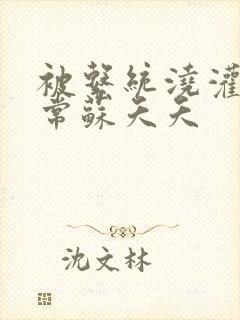 被繫統澆灌
常蘇夭夭
沈文林